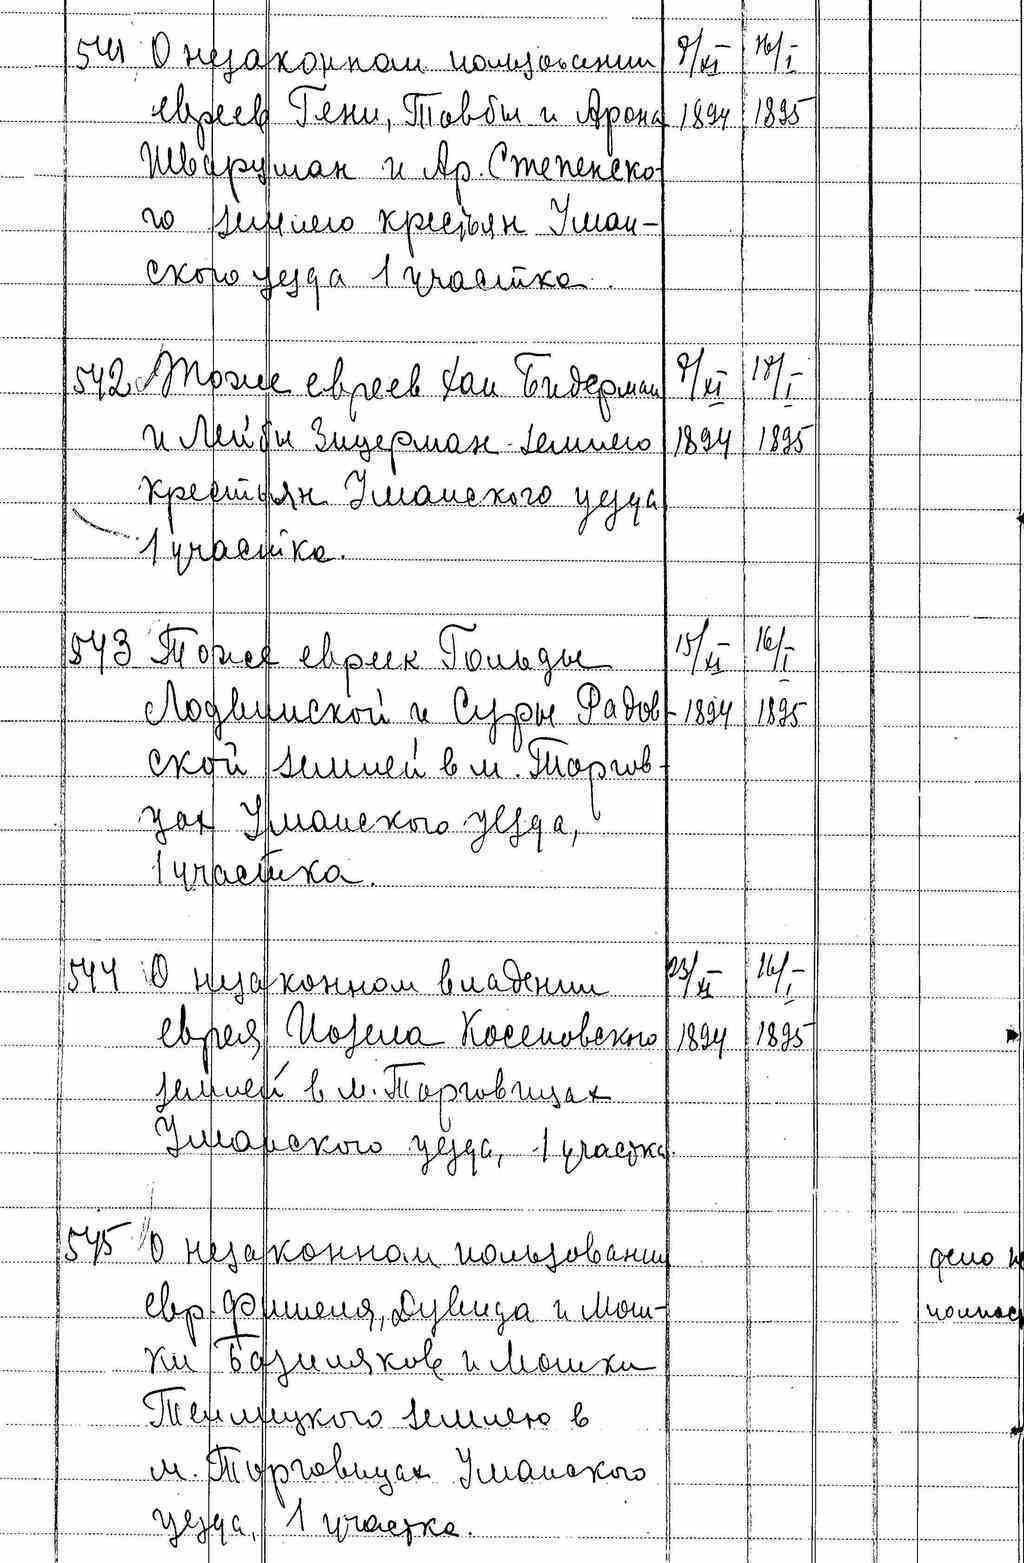 541 О незаконном пользовании 9/XI 16/I
евреев Гени, Товбы и Арона 1894 1895
Шварцман и Ар. Степенско-
го землею крестьян Уман-
ского уезда 1 участка.
542 Тоже евреев Хаи Бидерман 9/XI 18/I
и Лейбы Зицерман землею 1894 1895
крестьян Уманского уезда
1 участка.
543 Тоже евреек Гольды 15/XI 16/I
Лодвинской и Суры Радов- 1894 1895
ской землей в м. Торгов-
цах Уманского уезда,
1 участка.
544 О незаконном владении 23/XI 16/I
еврея Иозела Косеновского 1894 1895
землей в м. Торговицах
Уманского уезда, 1 участка.
545 О незаконном пользовании дело
евр. Фишеля, Дувида и Мош-
ки Базиляков и Мошки
Теплицкого землею в
м. Торговицах Уманского
уезда, 1 участка.